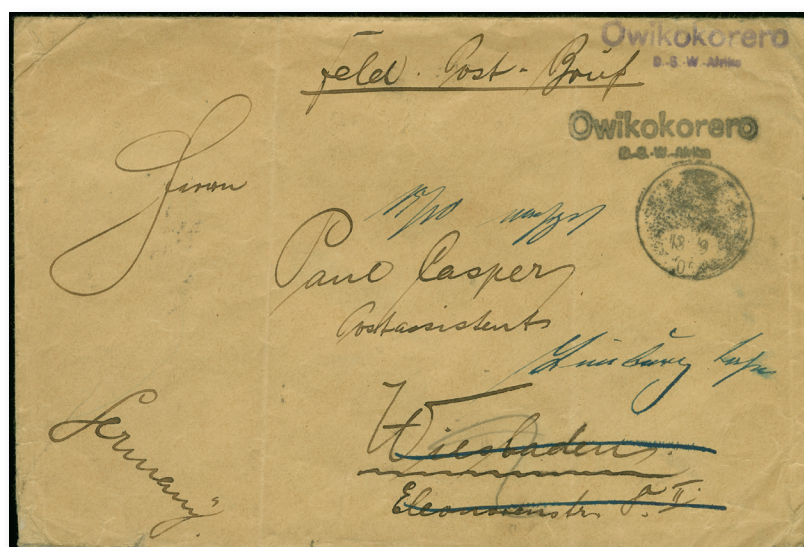 Owikokorero
D.-S.-W.-Afrika
Feld-Post-Brief
Owikokorero
D.-S.-W.-Afrika
Herrn
18 9
05
17/10
Paul Casper
Postassistent
Limburg
Wiesbaden.
Eleonorenstr. 5. II.
Germany